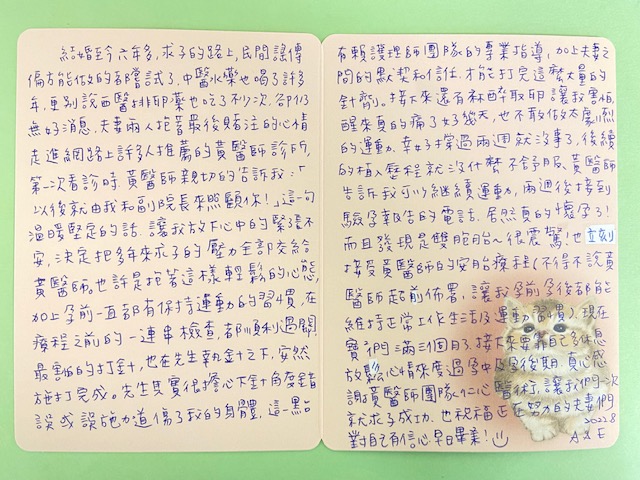 結婚至今六年多,求子的路上,民間謠傳
偏方能做的都嘗試了,中醫水藥也喝了許多
年,更別說西醫排卵藥也吃了不少次,卻仍
無好消息,夫妻兩人抱著最後賭注的心情
走進網路上許多人推薦的黃醫師診所,
第一次看診時,黃醫師親切的告訴我:「
以後就由我和副院長來照顧你!」這一句
溫暖堅定的話,讓我放下心中的緊張不
安,決定把多年來求子的壓力全部交給
黃醫師,也許是抱著這樣輕鬆的心態,
加上孕前一直都有保持運動的習慣,在
療程之前的一連串檢查,都順利過關,
最害怕的打針,也在先生執針之下,安然
施打完成。先生其實很擔心下針角度錯
誤或誤施力道傷了我的身體,這一點
有賴護理師團隊的專業指導,加上夫妻之
間的默契和信任,才能打完這麼大量的
針劑。接下來還有麻醉取卵讓我害怕,
醒來真的痛了好幾天,也不敢做太劇烈
的運動,幸好撐過兩週就沒事了,後續
的植入歷程就沒什麼不舒服,黃醫師
告訴我可以繼續運動,兩週後接到
驗孕報告的電話,居然真的懷孕了!
而且發現是雙胞胎~很震驚!也立刻
接受黃醫師的安胎療程(不得不說黃
醫師超前佈署,讓我孕前孕後都能
維持正常上作生活及運動習慣),現在
寶寶們滿三個月了,接下來要靠自己多休息
放鬆心情來度過孕中及孕後期,真心感
謝黃醫師團隊仁心醫術,讓我們一次
就求子成功,也祝福正在努力的夫妻們
對自己有信心,早日畢業!
2022.8